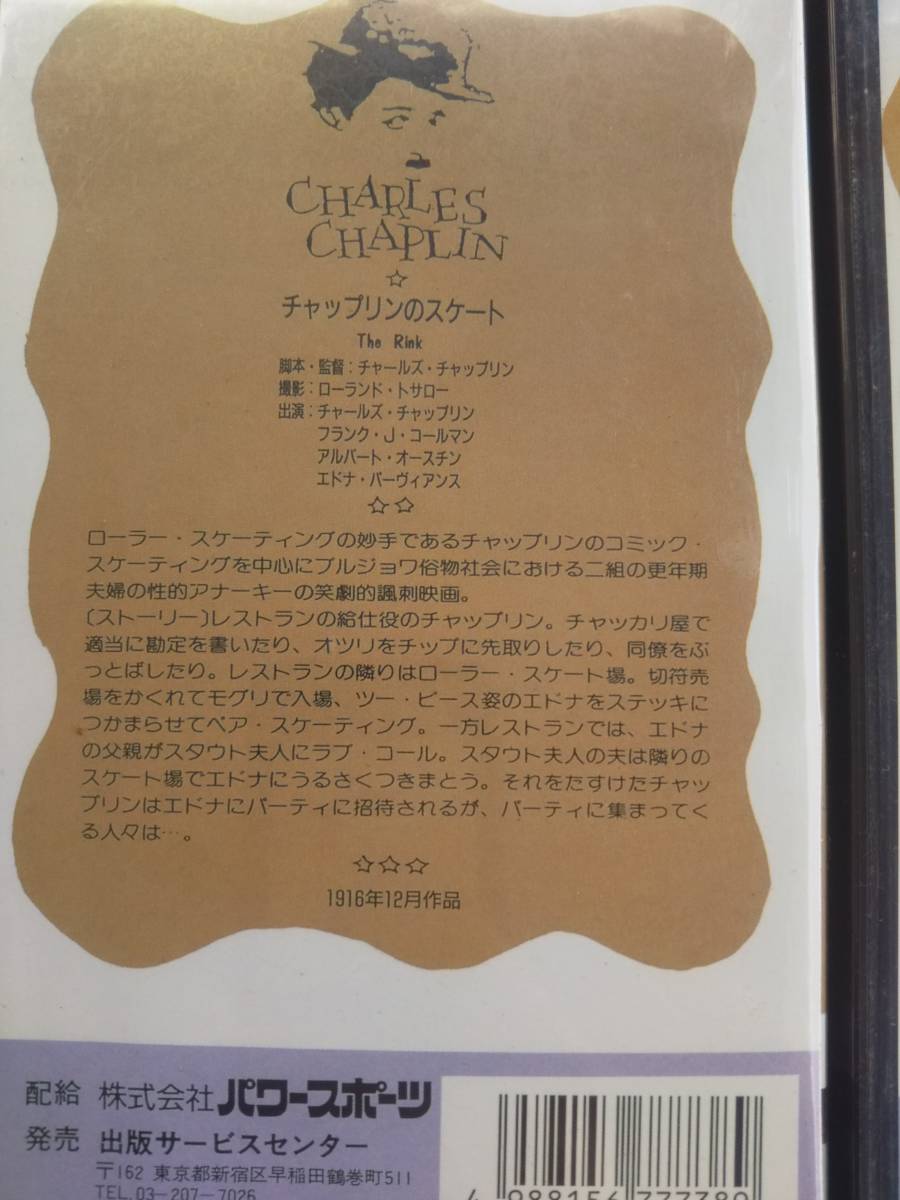 CHARLES
CHAPLIN
☆
チャップリンのスケート
The Rink
脚本・監督：チャールズ・チャップリン
撮影：ローランド・トサロー
出演：チャールズ・チャップリン
フランク・J・コールマン
アルバート・オースチン
エドナ・パーヴィアンス
☆☆
ローラー・スケーティングの妙手であるチャップリンのコミック・
スケーティングを中心にブルジョワ俗物社会における二組の更年期
夫婦の性的アナーキーの笑劇的諷刺映画。
〔ストーリー〕レストランの給仕役のチャップリン。チャッカリ屋で
適当に勘定を書いたり、オツリをチップに先取りしたり、同僚をぶ
っとばしたり。レストランの隣りはローラー・スケート場。切符売
場をかくれてモグリで入場、ツー・ピース姿のエドナをステッキに
つかまらせてペア・スケーティング。一方レストランでは、エドナ
の父親がスタウト夫人にラブ・コール。スタウト夫人の夫は隣りの
スケート場でエドナにうるさくつきまとう。それをたすけたチャッ
プリンはエドナにパーティに招待されるが、パーティに集まってく
る人々は…。
☆☆☆
1916年12月作品
配給 株式会社パワースポーツ
発売 出版サービスセンター
〒162 東京都新宿区早稲田鶴巻町511
TEL.03-207-7026
4 988156 333380